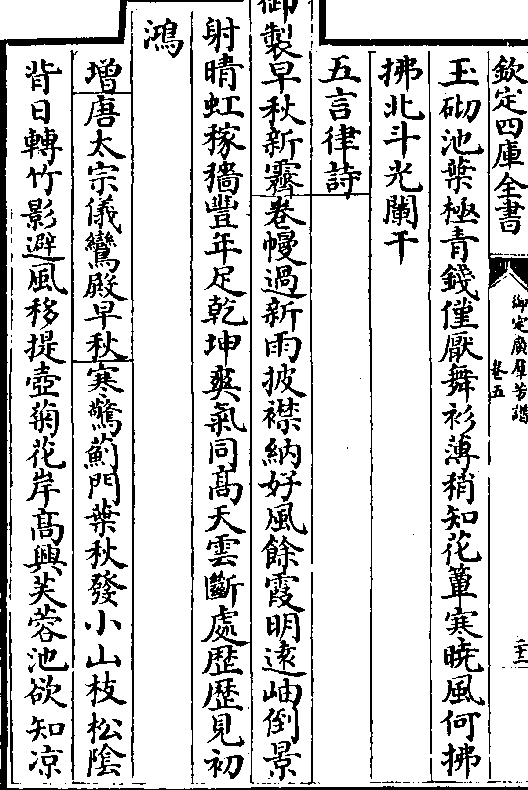 欽定四庫全書
御定廣羣芳譜
卷五
玉砌池葉極青錢僅厭舞衫薄稍知花簟寒曉風何拂
拂北斗光闌干
五言律詩
御製早秋新霽卷幔過新雨披襟納好風餘霞明遠岫倒景
射晴虹稼穡豐年足乾坤爽氣同高天雲斷處歴歴見初
鴻
增唐太宗儀鸞殿早秋寒驚薊門葉秋發小山枝松陰
背日轉竹影避風移提壺菊花岸高興芙蓉池欲知凉